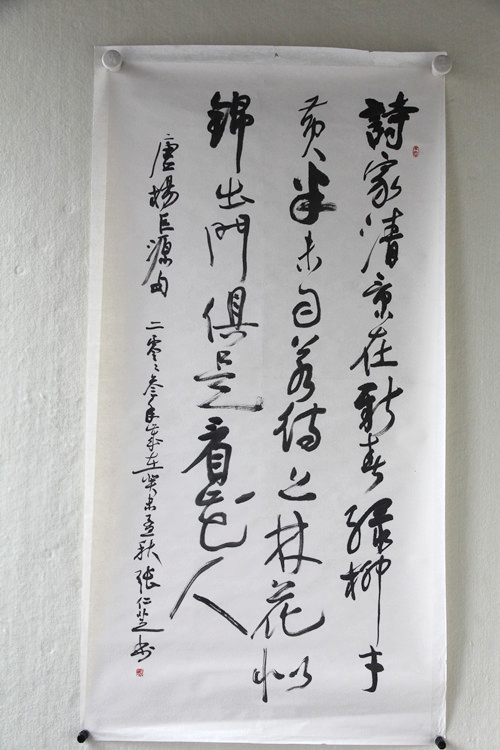 詩家清景在新春綠柳才
黃半未勻若待上林花似
錦出門俱是看花人
唐楊巨源句 二零〻叁年歲在癸未孟秋張仁芝書